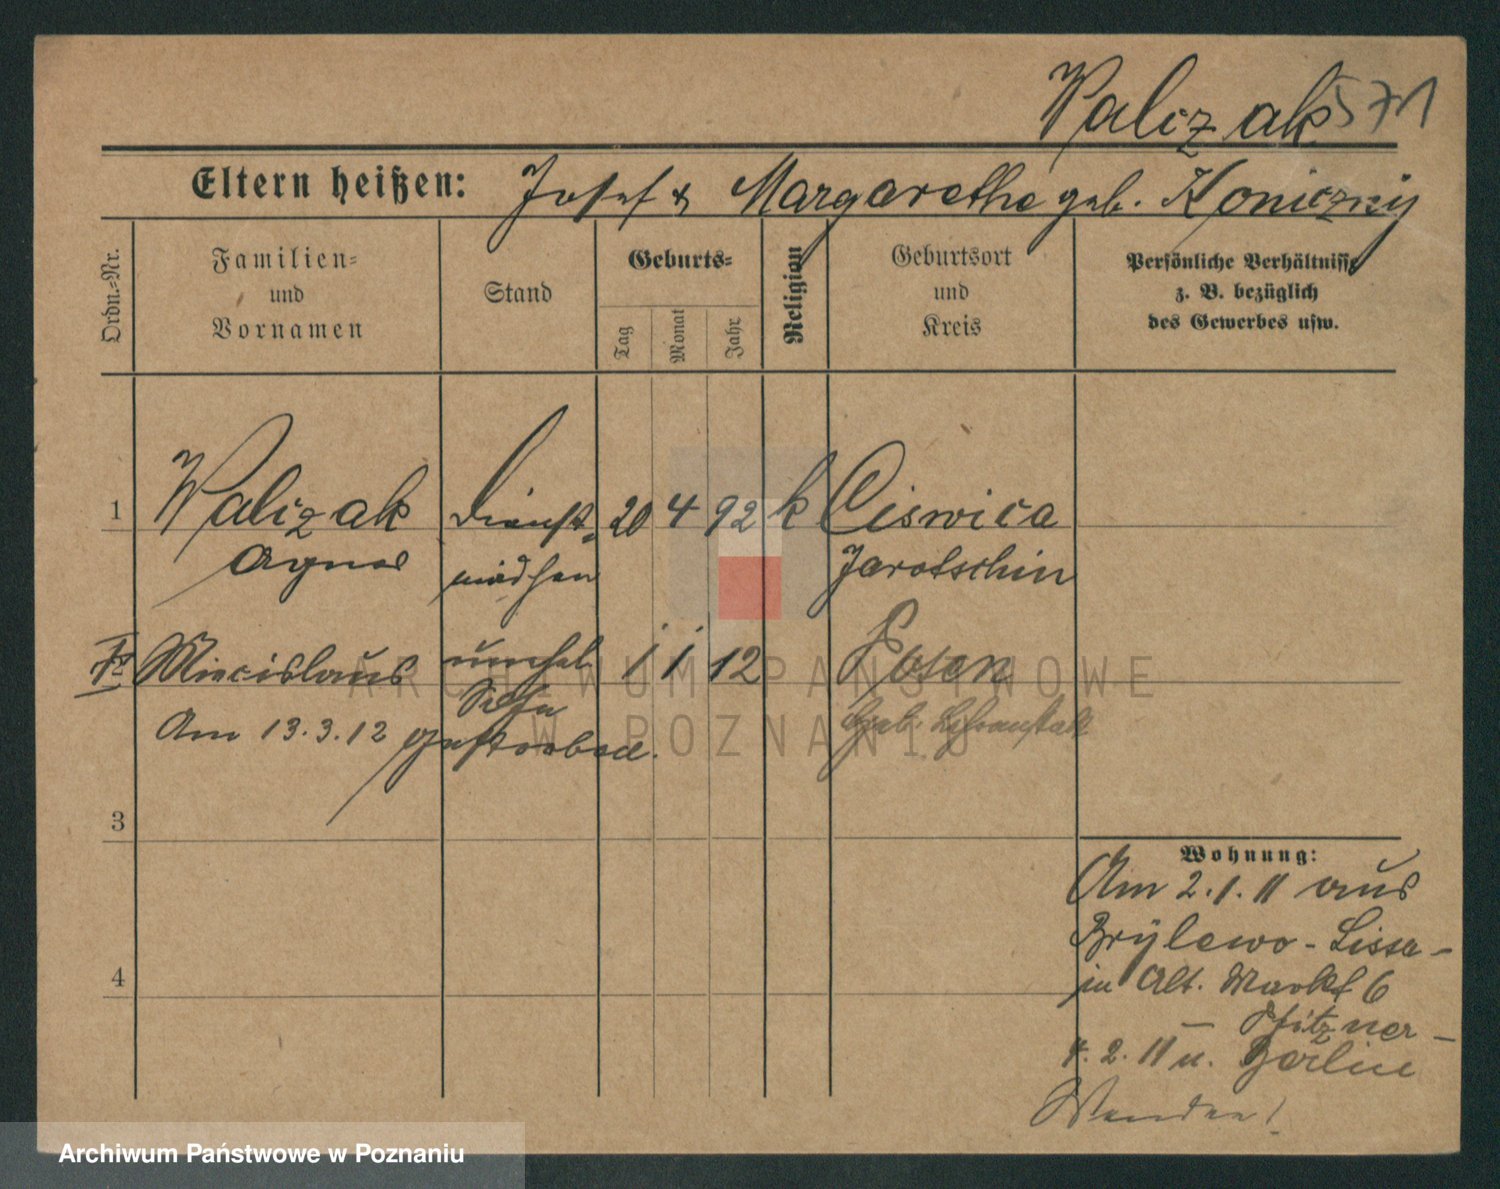 Walizak 571
Eltern heißen: Josef & Margarethe geb. Koniczny
Ordn.-Nr.
Familien-
und
Vornamen
Stand
Geburts-
Tag
Monat
Jahr
Religion
Geburtsort
und
Kreis
Persönliche Verhältnisse
z. B. bezüglich
des Gewerbes usw.
1 Walizak Dienst- 20 4 92 k Ciswica
Agnes mädchen Jarotschin
Miecislaus unehel. 1 1 12 Posen
Sohn
Am 13.3.12 gestorben. Geb.
3
Wohnung:
Am 2.1.11 aus
Brÿlewo - Lissa -
in Alt. Markt 6
- Pfitzner -
4. 2. 11 n. Berlin
Wenden!
4
ARCHIWUM PAŃSTWOWE
W POZNANIU
Archiwum Państwowe w Poznaniu